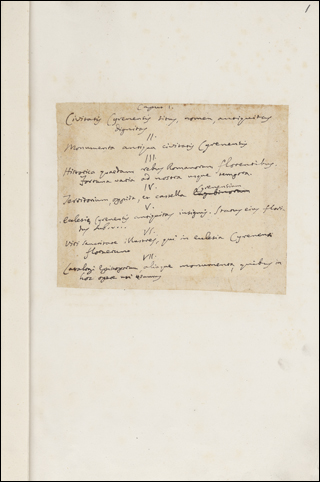 1
Caput I.
Civitatis Cyrenensis situs, nomen, antiquitas
dignitas
II.
Monumenta antiqua civitatis Cyrenensis
III.
Historica quaedam rebus Romanorum florentibus,
fortuna varia ad nostra usque tempora
IV.
Territorium, oppida, et castella
V.
Ecclesiae Cyrenensis antiquitas insignis. Status eius
VI.
Viri sanctitate illustres, qui in ecclesia Cyrenensi
floruerunt
VII.
Catalogi Episcoporum, aliaque monumenta, quibus in
hoc opere usi sumus